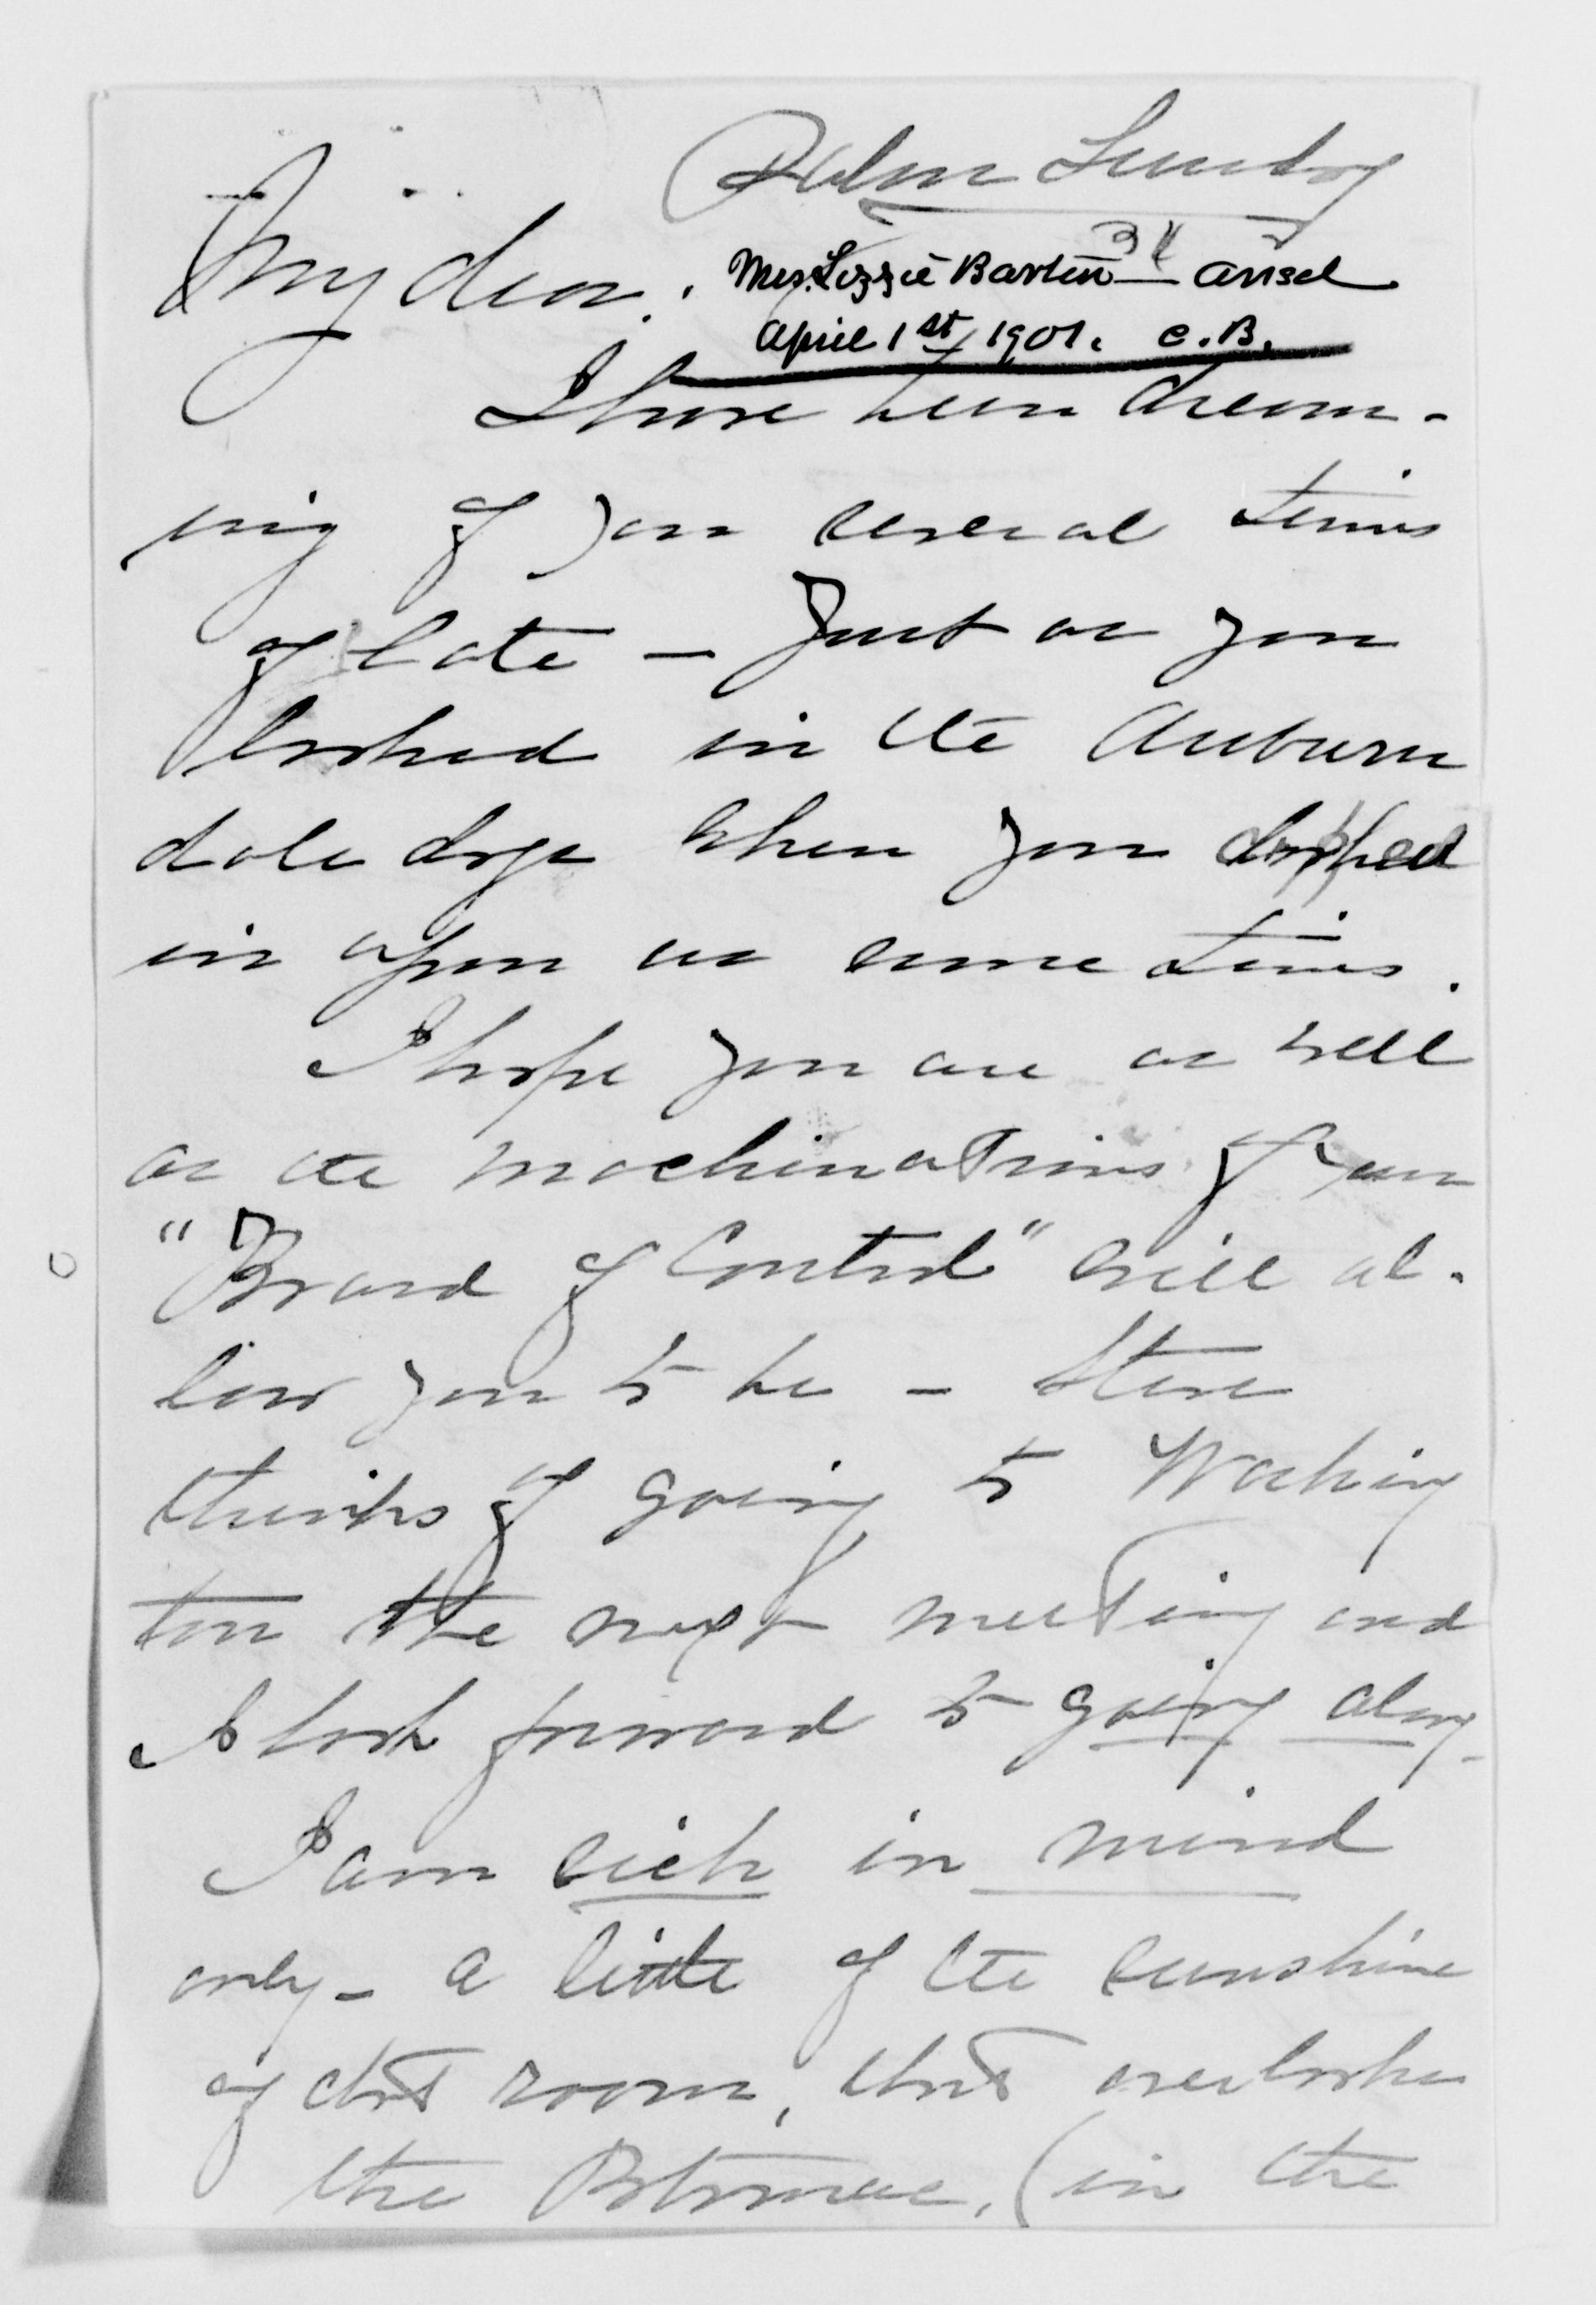 Palm Sunday
31
My dear.
Mrs. Lizzie Barton ansd
April 1st 1901. C.B.
I have been dream-
ing of you several times
of late — Just as you
looked in the Auburn
dale days when you dropped
in upon us some times.
I hope you are as well
as the machinations of your
"Board of Control" will al-
low you to be - Steve
thinks of going to Washing
ton the next meeting and
I look forward to going along-
I am sick in mind
only - a little of the sunshine
of that room, that overlooks
the Potomac, (in the